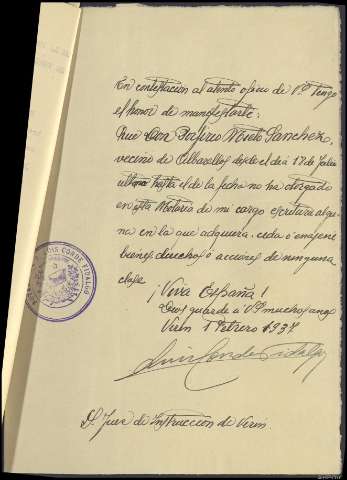 En contestación al atento oficio de V.º tengo
el honor de manifestarle:
Que Don Nieto Sanchez,
vecino de Albarellos desde el dia 17 de Julio
ultimo hasta el de la fecha no ha otorgado
en esta Notaria de mi cargo escritura algu-
na en la que adquiera, ceda o enajene
bienes, derechos o acciones de ninguna
clase
¡Viva España!
Dios guarde a Vº muchos años
Verin 1 Febrero 1937
Luis Conde Fidalgo
LUIS CONDE FIDALGO
Sr. Juez de Instruccion de Verin.